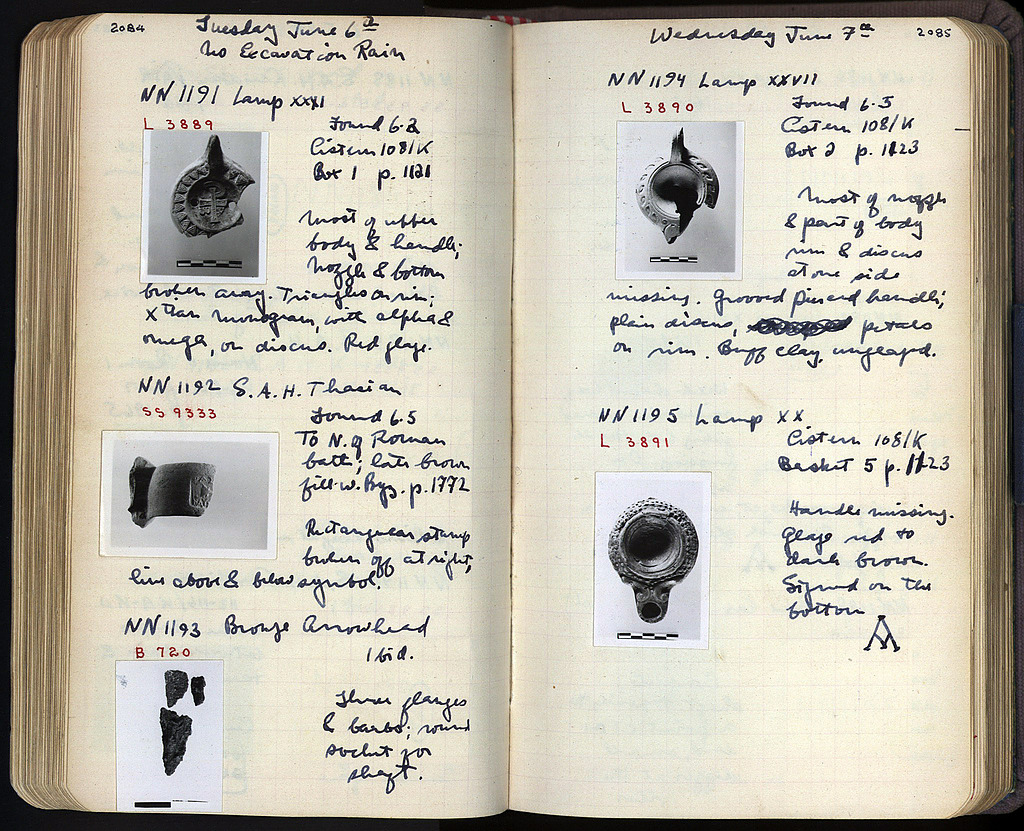 2084
Tuesday June 6th
No Excavation Rain
NN 1191 Lamp XXXI
L 3889
Found 6.2
Cistern 108/K
Box 1 p. 1121
Most of upper
body & handle;
nozzle & bottom
broken away. Triangles on rim;
Xtian monogram, with alpha &
omega, on discus. Red glaze.
NN 1192 S.A.H. Thasian
SS 9333
Found 6.5
To N. of Roman
bath; late brown
fill w. Byz. p. 1772
Rectangular stamp
broken off at right;
line above & below symbol.
NN 1193 Bronze Arrowhead
B 720
Ibid.
Three flanges
& barbs; round
socket for
shaft.
2085
Wednesday June 7th
NN 1194 Lamp XXVII
L 3890
Found 6.5
Cistern 108/K
Box 2 p. 1123
Most of nozzle
& part of body
rim & discus
at one side
missing. Grooved pierced handle;
plain discus, petals
on rim. Buff clay, unglazed.
NN 1195 Lamp XX
L 3891
Cistern 108/K
Basket 5 p. 1123
Handle missing.
Glaze red to
dark brown.
Signed on the
bottom